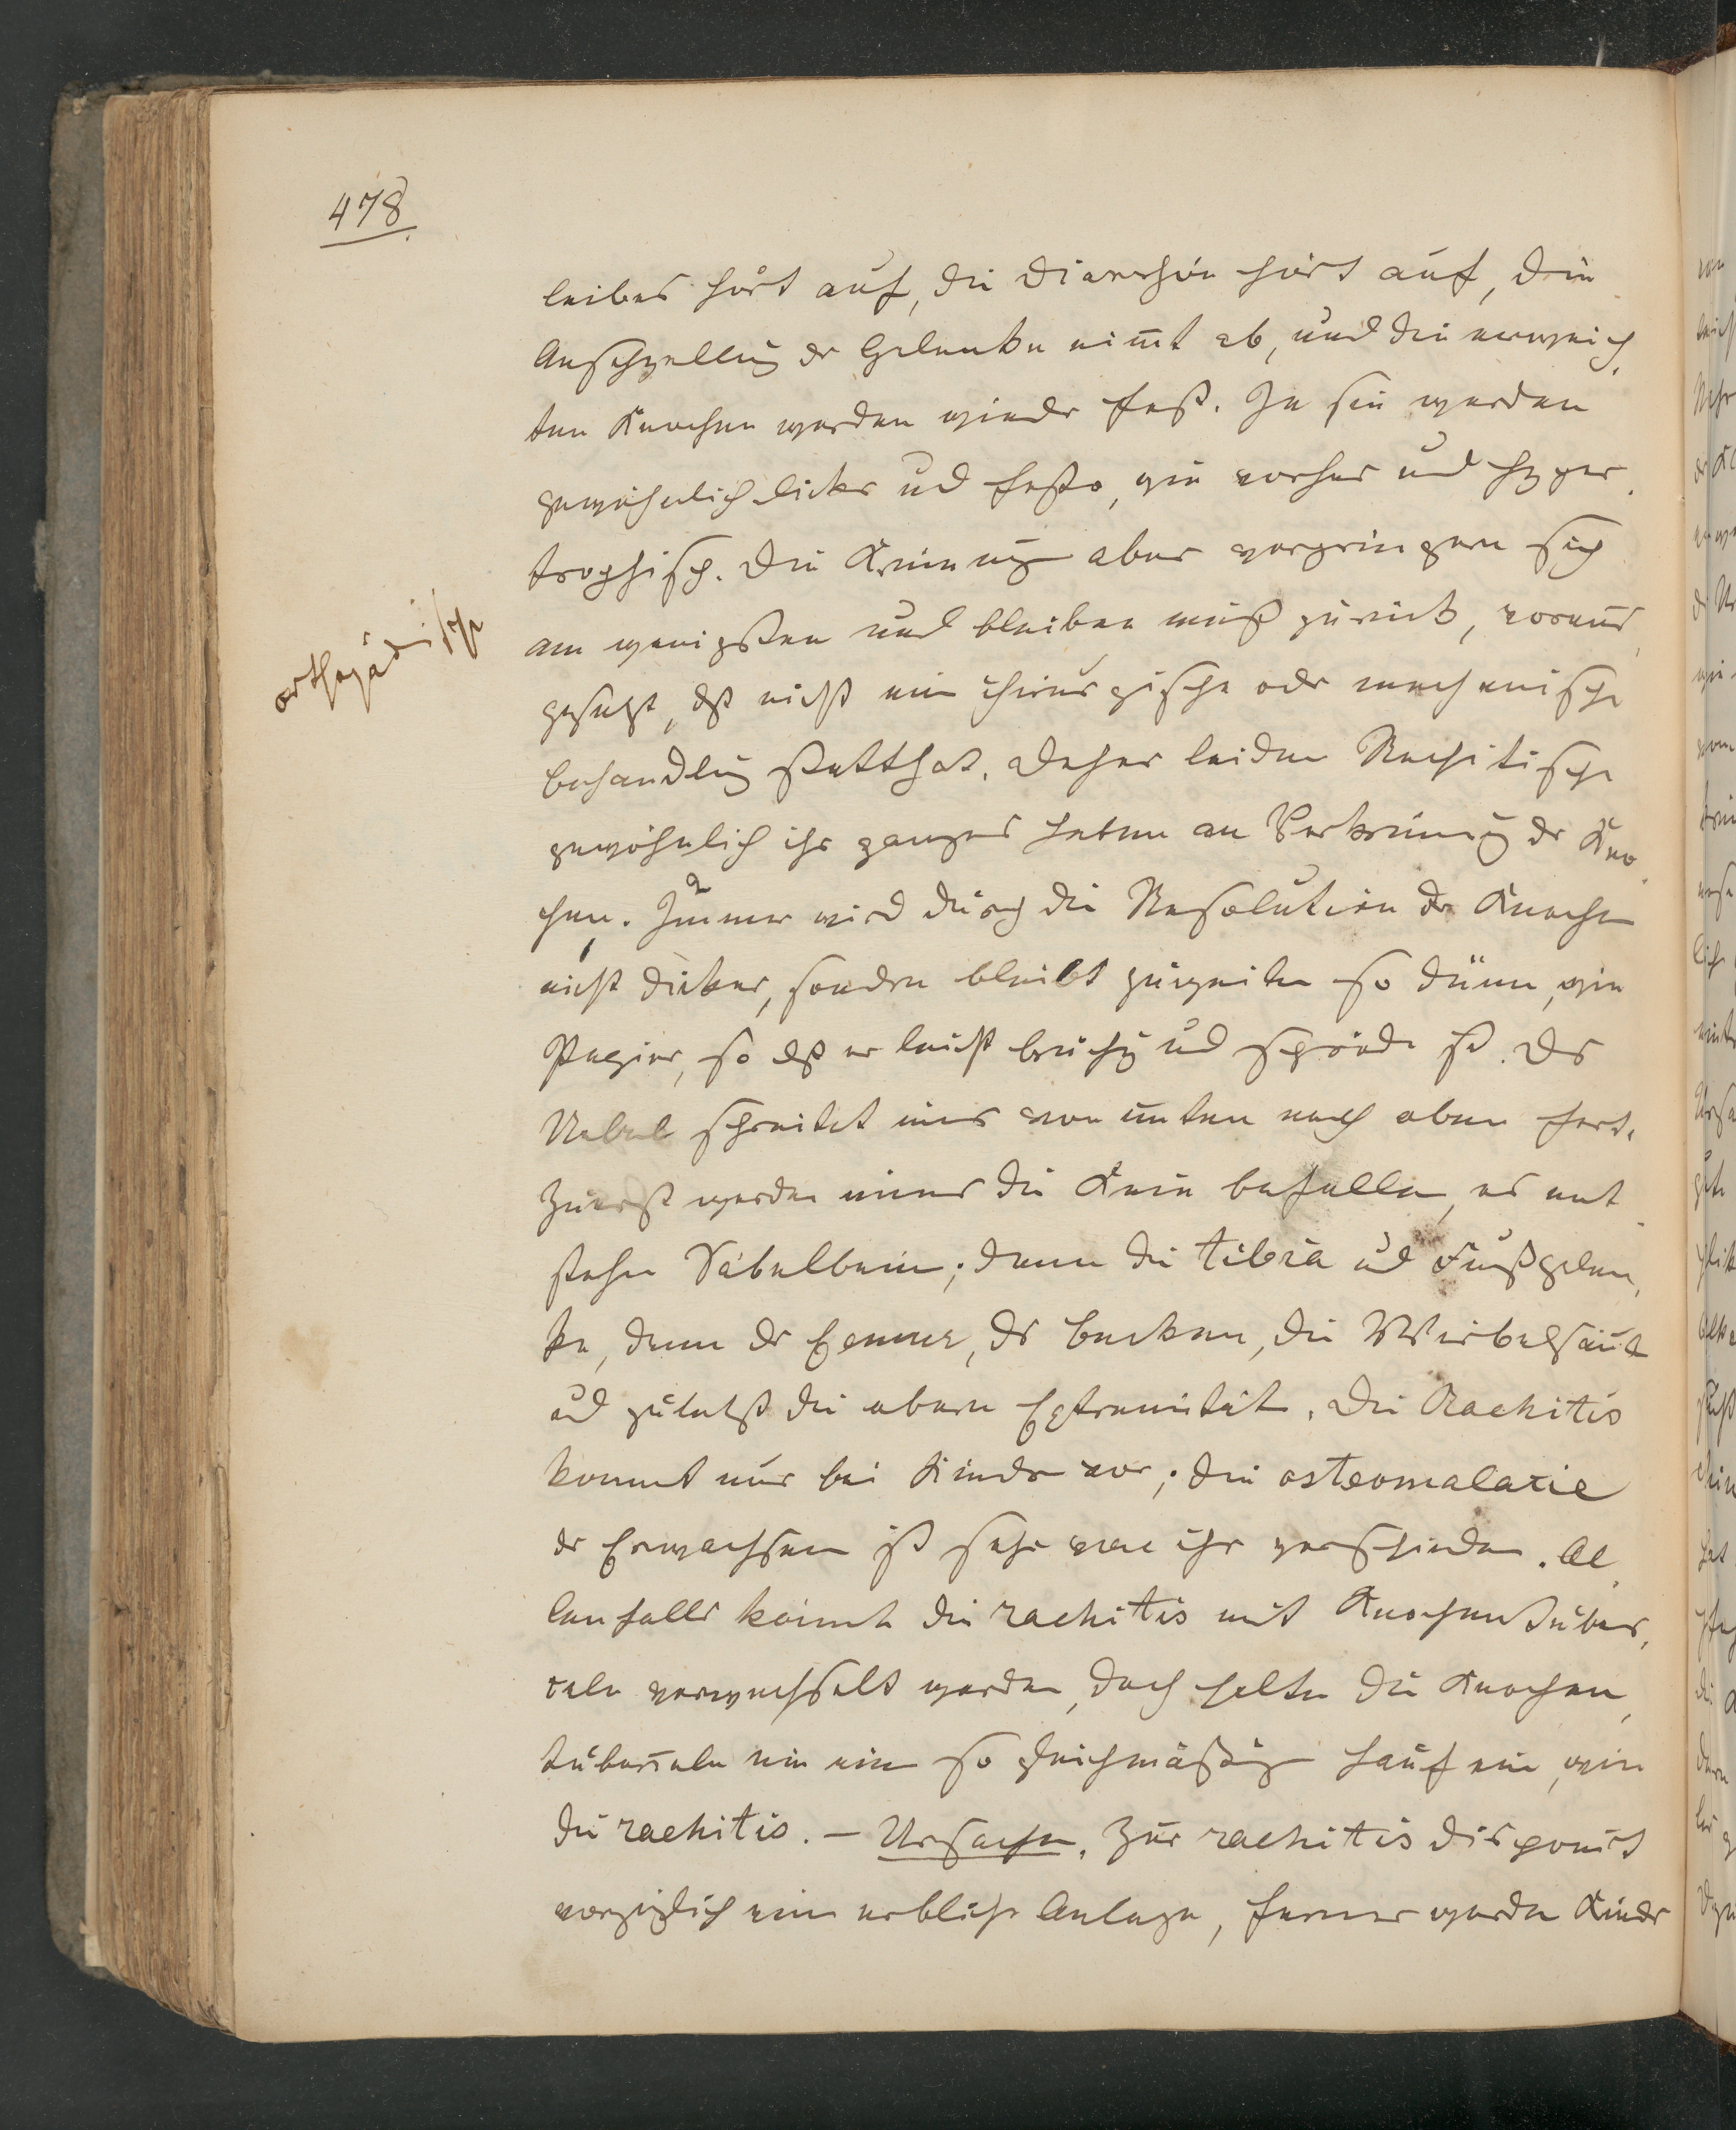 478
leibes hört auf, die Diarrhöe hört auf, die
Anschwellung der Gelenke nim̅t ab, und die erweich¬
ten Knochen werden wieder fest. Ja sie werden
gewöhnlich dicker und fester, wie vorher und hyper¬
trophisch. Die Krüm̅ung aber verringern sich
am wenigsten und bleiben meist zurück, voraus¬
gesetzt, daß nicht eine chirurgische oder mechanische
orthopädische
Behandlung statthat. Daher leiden Rachitische
gewöhnlich ihr ganzes Leben an Verkrüm̅ung der Kno¬
chen. Im̅mer wird durch die Resolution der Knochen
nicht dicker, sondern bleibt zuweilen so dünn, wie
Papier, so daß er leicht brüchig und spröde ist. Das
Uebel schreitet im̅er von unten nach oben fort.
Zuerst werden im̅er die Knie befallen, es ent¬
stehen Säbelbeine; dann die tibia und Fußgelen¬
ke, dann der Femur, das Becken, die Wirbelsäule
und zuletzt die obern Extremitäten. Die Rachitis
kommt nur bei Kindern vor; die osteomalacie
der Erwachsenen ist sehr von ihr verschieden. Al¬
lenfalls könnte die rachitis mit Knochentuber¬
keln verwechselt werden, doch halten die Knochen¬
tuberkeln nie einen so gleichmäßigen Lauf ein, wie
die rachitis. – Ursachen. Zur rachitis disponirt
vorzüglich eine erbliche Anlage, ferner werden Kinder